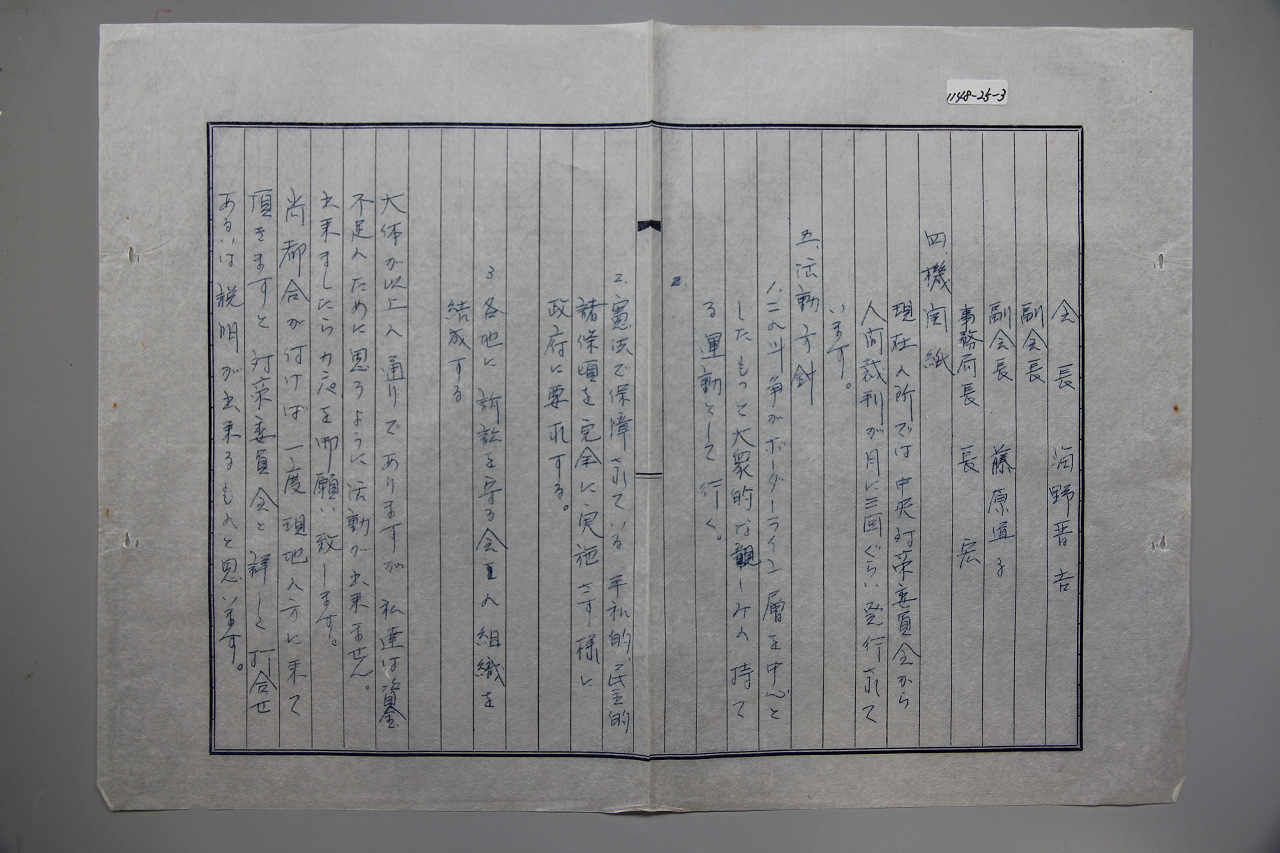 1148-25-3
会長 潤野晋吉
副会長
副会長 藤原道子
事務局長 長宏
四 機関紙
現在入所では中央対策委員会から
人間裁判が月に三回ぐらい発行されて
います。
五、活動方針
1. この斗争がボーダーライン層を中心と
したもっと大衆的な親しみの持て
る運動として行く。
2.
2. 憲法で保障されている平和的、民主的
諸条項を完全に実施さす様に
政府に要求する。
3. 各地に訴訟を守る会の組織を
結成する
大体が以上の通りでありますが私達は資金
不足のために思うように活動が出来ません。
出来ましたらカンパを御願い致します。
尚都合が付けば一度現地の方に来て
頂きますと対策委員会と詳しく打合せ
あるいは説明が出来るものと思います。